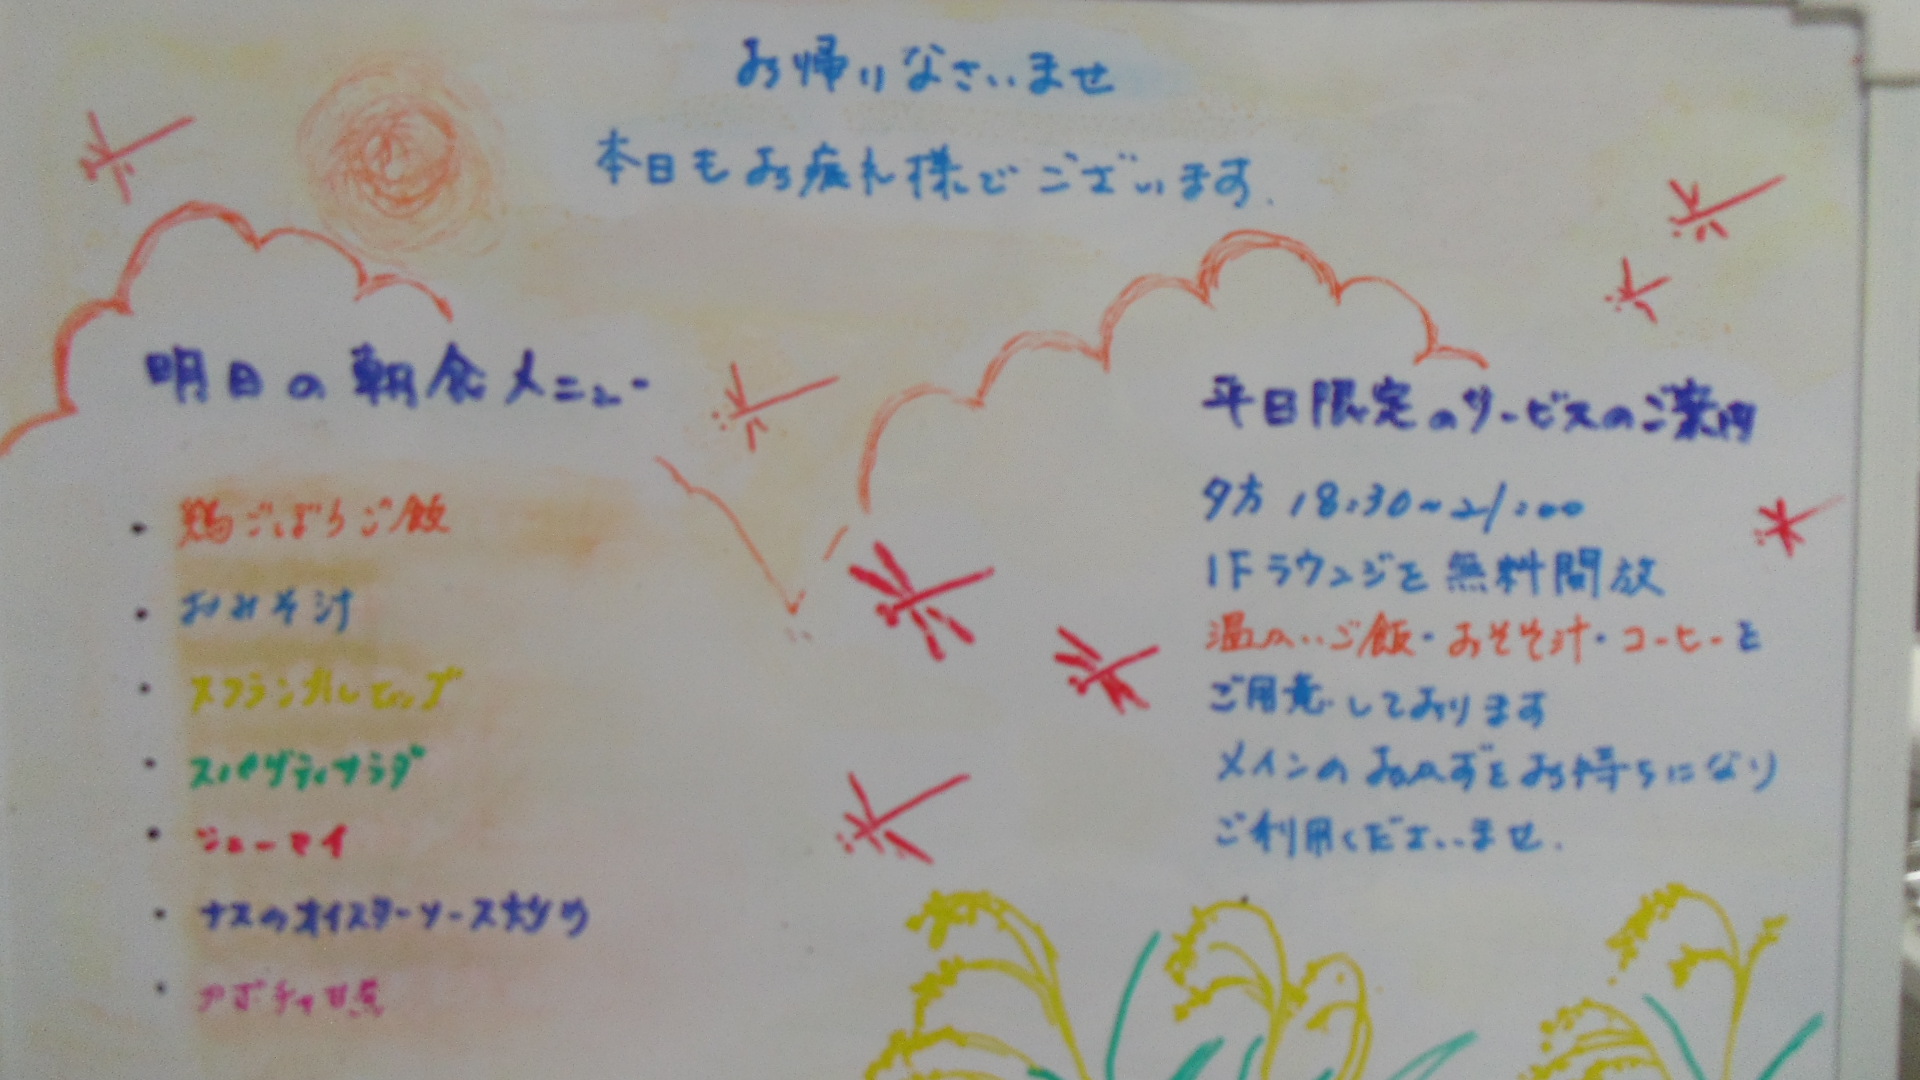 お帰りなさいませ
本日もお疲れ様でございます.
明日の朝食メニュー
・鶏ごぼうご飯
・おみそ汁
・スクランブルエッグ
・スパゲティサラダ
・シューマイ
・ナスのオイスターソース炒め
・カボチャ甘煮
平日限定のサービスのご案内
夕方 18:30~21:00
1Fラウンジを無料開放
温かいご飯・おみそ汁・コーヒーを
ご用意しております
メインのおかずをお持ちになり
ご利用くださいませ.